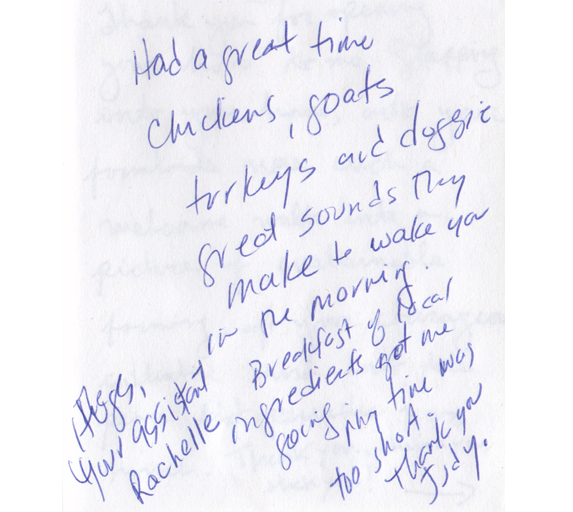 Had a great time
Chickens, goats
turkeys and doggie
great sounds they
make to wake you
in the morning.
Breakfast of local
ingredients got me
going my time was
too short.
Thank you
Judy.
Hugs,
Your assistant
Rachelle